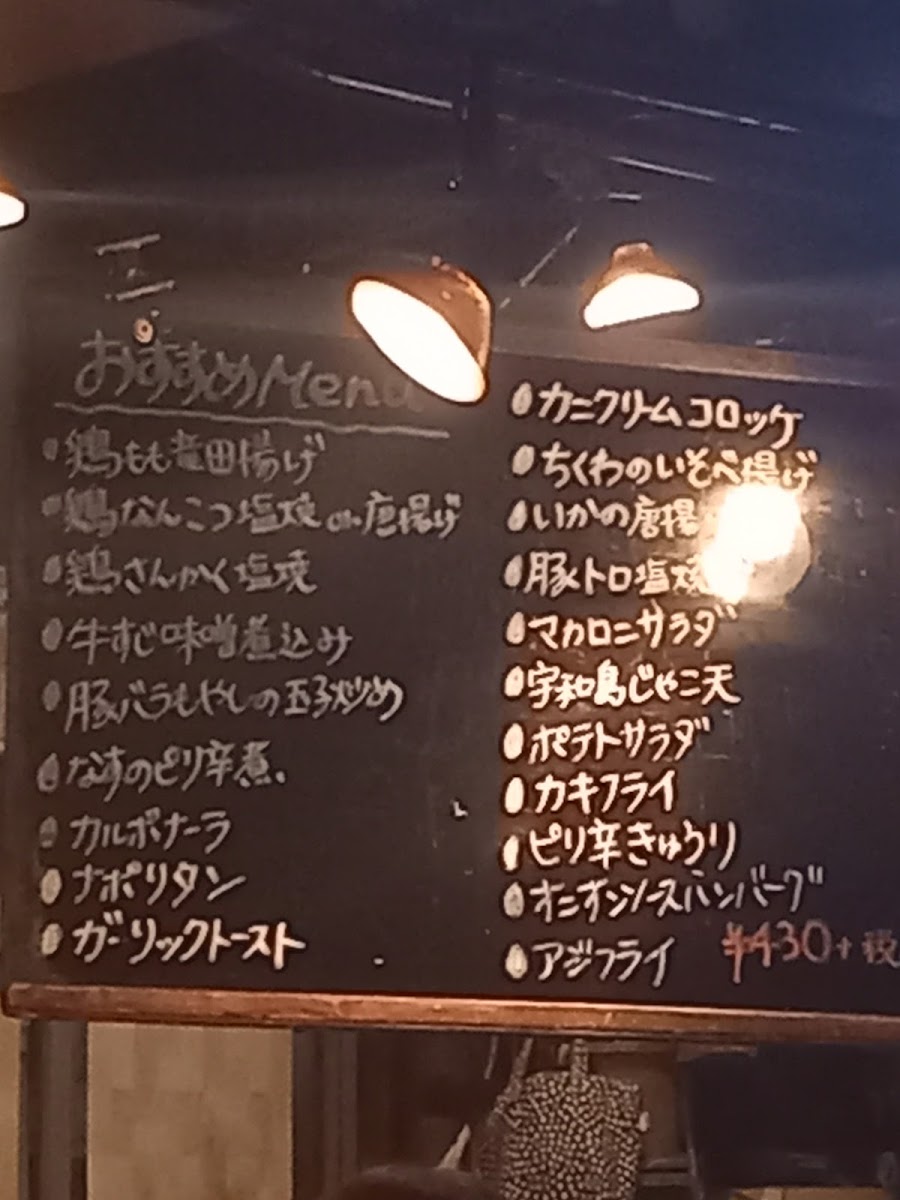 おすすめMenu
鶏もも竜田揚げ
鶏なんこつ塩焼 or 唐揚げ
鶏さんかく塩焼
牛すじ味噌煮込み
豚バラもやしの玉子炒め
なすのピリ辛煮
カルボナーラ
ナポリタン
ガーリックトースト
カニクリームコロッケ
ちくわのいそべ揚げ
いかの唐揚
豚トロ塩焼
マカロニサラダ
宇和島じゃこ天
ポテトサラダ
カキフライ
ピリ辛きゅうり
オニオンソースハンバーグ
アジフライ
¥430+税